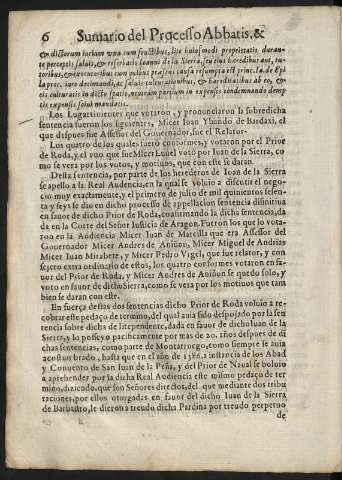 6 Sumario del Processo Abbatis, &
& dictarum iurium vna cum fructibus, lite huiusmodi proprietatis duran-
te perceptis saluis, & reseruatis Ioanni de la Sierra, seu eius heredibus aut, tu-
toribus, & executoribus cum quibus præsens causa resumpta est princ. la. de Epi
la proc. iure decimandi, & saluis iuribus fisco, & hereditatibus ab eo, &
eis culturatis in dicto statu, neutram partium in expensis condemnando demp
tis expensis soluï mandatis.
Los Lugartinientes que votaron, y pronunciaron la sobredicha
sentencia fueron los siguientes, Micer Iuan Ysando de Bardaxi, el
que despues fue Assessor del Gouernador, fue el Relator.
Los quatro de los quales fueron conformes, y votaron por el Prior
de Roda, y el vno que fue Micer Luisel votò por Iuan de la Sierra, co
mo se vera por los votos, y motiuos, que con este se daran.
Desta sentencia, por parte de los herederos de Ioan de la Sierra
se apello a la Real Audiencia, en la qual se voluio a discutir el nego-
cio muy exactamente, y el primero de julio de mil quinientos seten-
ta y seys se dio en dicho processo de appellacion sentencia difinitiua
en fauor de dicho Prior de Roda, confirmando la dicha sentencia, da
da en la Corte del Señor Iusticia de Aragon. Fueron los que lo vota-
ron en la Audiencia Micer Iuan de Marcilla que era Assessor del
Gouernador Micer Andres de Aniñon, Micer Miguel de Andrias
Micer Iuan Mirabete, y Micer Pedro Vigel, que fue relator, y con
sejero extra ordinario de estos, los quatro conformes votaron en fa-
uor del Prior de Roda, y Micer Andres de Aniñon se quedo solo, y
voto en fauor de dicho Sierra, como se vera por los motiuos que tam
bien se daran con este.
En fuerça destas dos sentencias dicho Prior de Roda voluio a re-
cobrar este pedaço de termino, del qual auia sido despojado por la sen
tencia sobre dicha de litependente, dada en fauor de dicho Iuan de la
Sierra, y lo posseyo pacificamente por mas de 20. años despues de di
chas sentencias, como parte de Montarruego, como siempre se auia
acostumbrado, hasta que en el año de 1586. a instancia de los Abad
y Conuento de San Iuan de la Peña, y del Prior de Naual se boluio
a aprehender por la dicha Real Audiencia este mismo pedaço de ter
mino, diziendo, que son Señores directos, del que mediante dos tribu
taciones, por ellos otorgadas en fauor del dicho Iuan de la Sierra
de Barbastro, le dieron a treudo dicha Pardina por treudo perpetuo
de